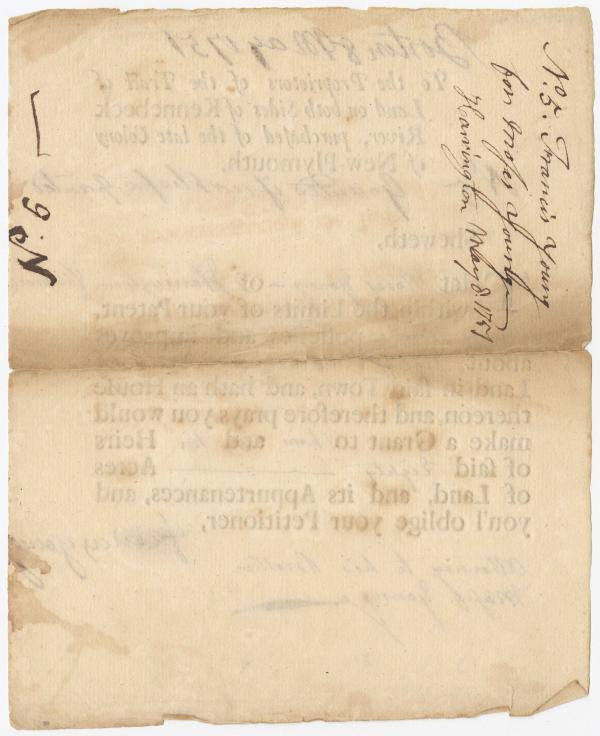 No. 5. Francis Young
for Moses Young
Harrington May 8. 1751
No.
Boston 8 May 1751
To the Proprietors of the Tract of
Land on both Sides of Kennebeck
River, purchased of the late Colony
of New-Plymouth.
Sheweth,
That of Harrington
within the Limits of your Patent,
possesses and improves
about
Land in said Town, and hath an House
thereon, and therefore prays you would
make a Grant to him and his Heirs
of said Acres
of Land, and its Appurtenances, and
you'l oblige your Petitioner,
Francis Young
Attorney to his Brother
Moses Young